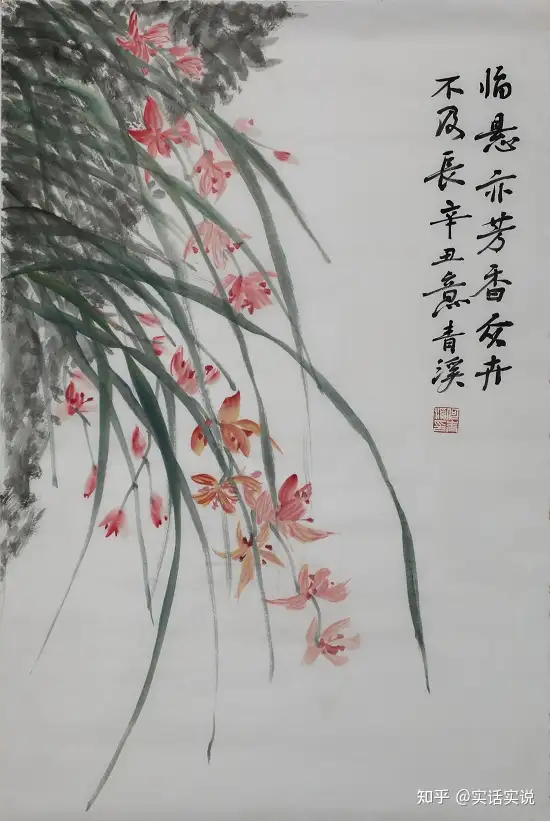 临悬亦芳香众卉
不及長辛丑意青溪
知乎 @实话实说